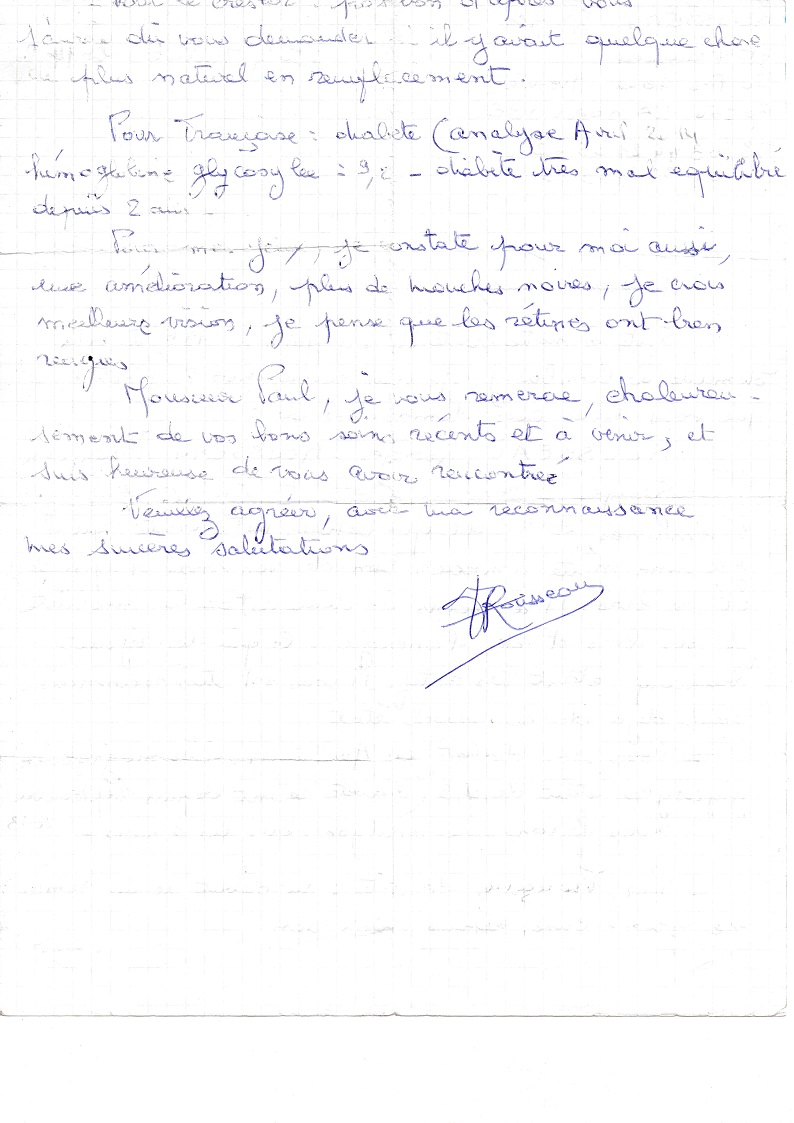 vous
dû vous demander il y avait quelque chose
plus naturel en remplacement.
Pour Françoise : diabète (analyse Avril
hémoglobine glycosylée = 9,2 – diabète très mal équilibré
depuis 2 ans –
Pour mes yeux, je constate pour moi aussi,
une amélioration, plus de mouches noires, je crois
meilleure vision, je pense que les rétines ont bien
réagies
Monsieur Paul, je vous remercie, chaleureu-
sement de vos bons soins récents et à venir, et
suis heureuse de vous avoir rencontré
Veuillez agréer, avec ma reconnaissance
mes sincères salutations
Rousseau